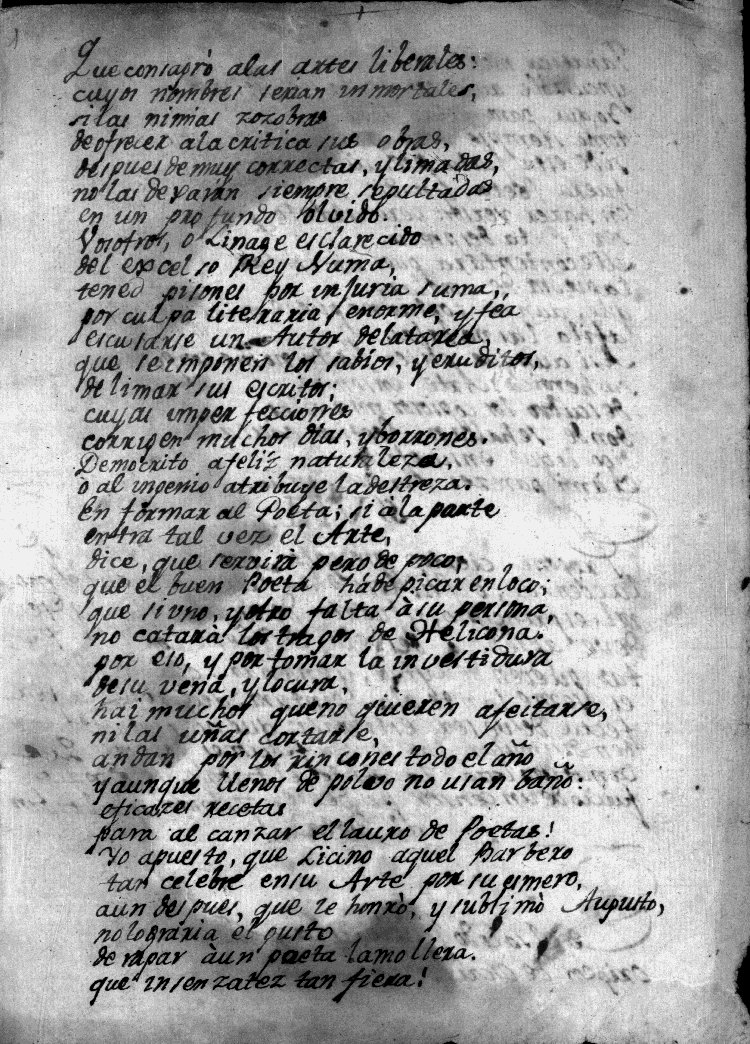 Que consagrò alas artes liberales:
cuyos nombres serian inmortales,
si las nimas zozobras
de ofrecer ala critica sus obras,
despues de muy correctas, y limadas,
no las dexaran siempre sepultadas
en un profundo olvido.
Vosotros, o Linage esclarecido
del excelso Rey Numa,
tened pisones por injuria suma,
por culpa literaria enorme, y fea
escusarse un Autor dela tarea,
que se imponen los sabios, y eruditos,
de limar sus escritos;
cuyas imperfecciones
corrigen muchos dias, y borrones.
Democrito afeliz naturaleza,
ò al ingenio atribuye la destreza.
En formar al Poeta; si àla parte
entra tal vez el Arte,
dice, que servirà pero de poco;
que el buen Poeta hà de picar en loco;
que si uno, y otro falta à su persona,
no catarà los tragos de Helicona.
por eso, y por tomar la investidura
de su vena, y locura,
hai muchos que no quieren afeitarse,
ni las uñas cortarse,
andan por los rincones todo el año
y aunque llenos de polvo no usan baño:
eficazes recetas
para alcanzar el lauro de Poetas!
Yo apuesto, que Licino aquel Barbero
tan celebre en su Arte por su esmero,
aun despues, que le honrò, y sublimò Augusto,
no lograria el gusto
de rapar àun poeta la mollera.
que insenzatez tan fiera!